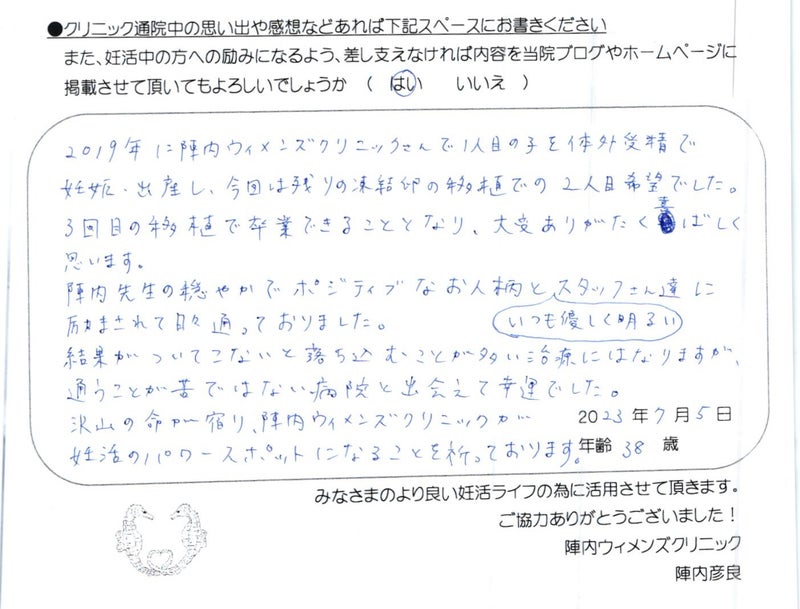 ●クリニック通院中の思い出や感想などあれば下記スペースにお書きください
また、妊活中の方への励みになるよう、差し支えなければ内容を当院ブログやホームページに
掲載させて頂いてもよろしいでしょうか ( はい いいえ )
2019年に陣内ウィメンズクリニックさんで1人目の子を体外受精で
妊娠・出産し、今回は残りの凍結卵の移植での2人目希望でした。
3回目の移植で卒業できることとなり、大変ありがたく喜ばしく
思います。
陣内先生の穏やかでポジティブなお人柄といつも優しく明るいスタッフさん達に
励まされて日々通っておりました。
結果がついてこないと落ち込むことが多い治療にはなりますが、
通うことが苦ではない病院と出会えて幸運でした。
沢山の命が宿り、陣内ウィメンズクリニックが
妊活のパワースポットになることを祈っております。
2023年7月5日
年齢 38 歳
みなさまのより良い妊活ライフの為に活用させて頂きます。
ご協力ありがとうございました！
陣内ウィメンズクリニック
陣内彦良